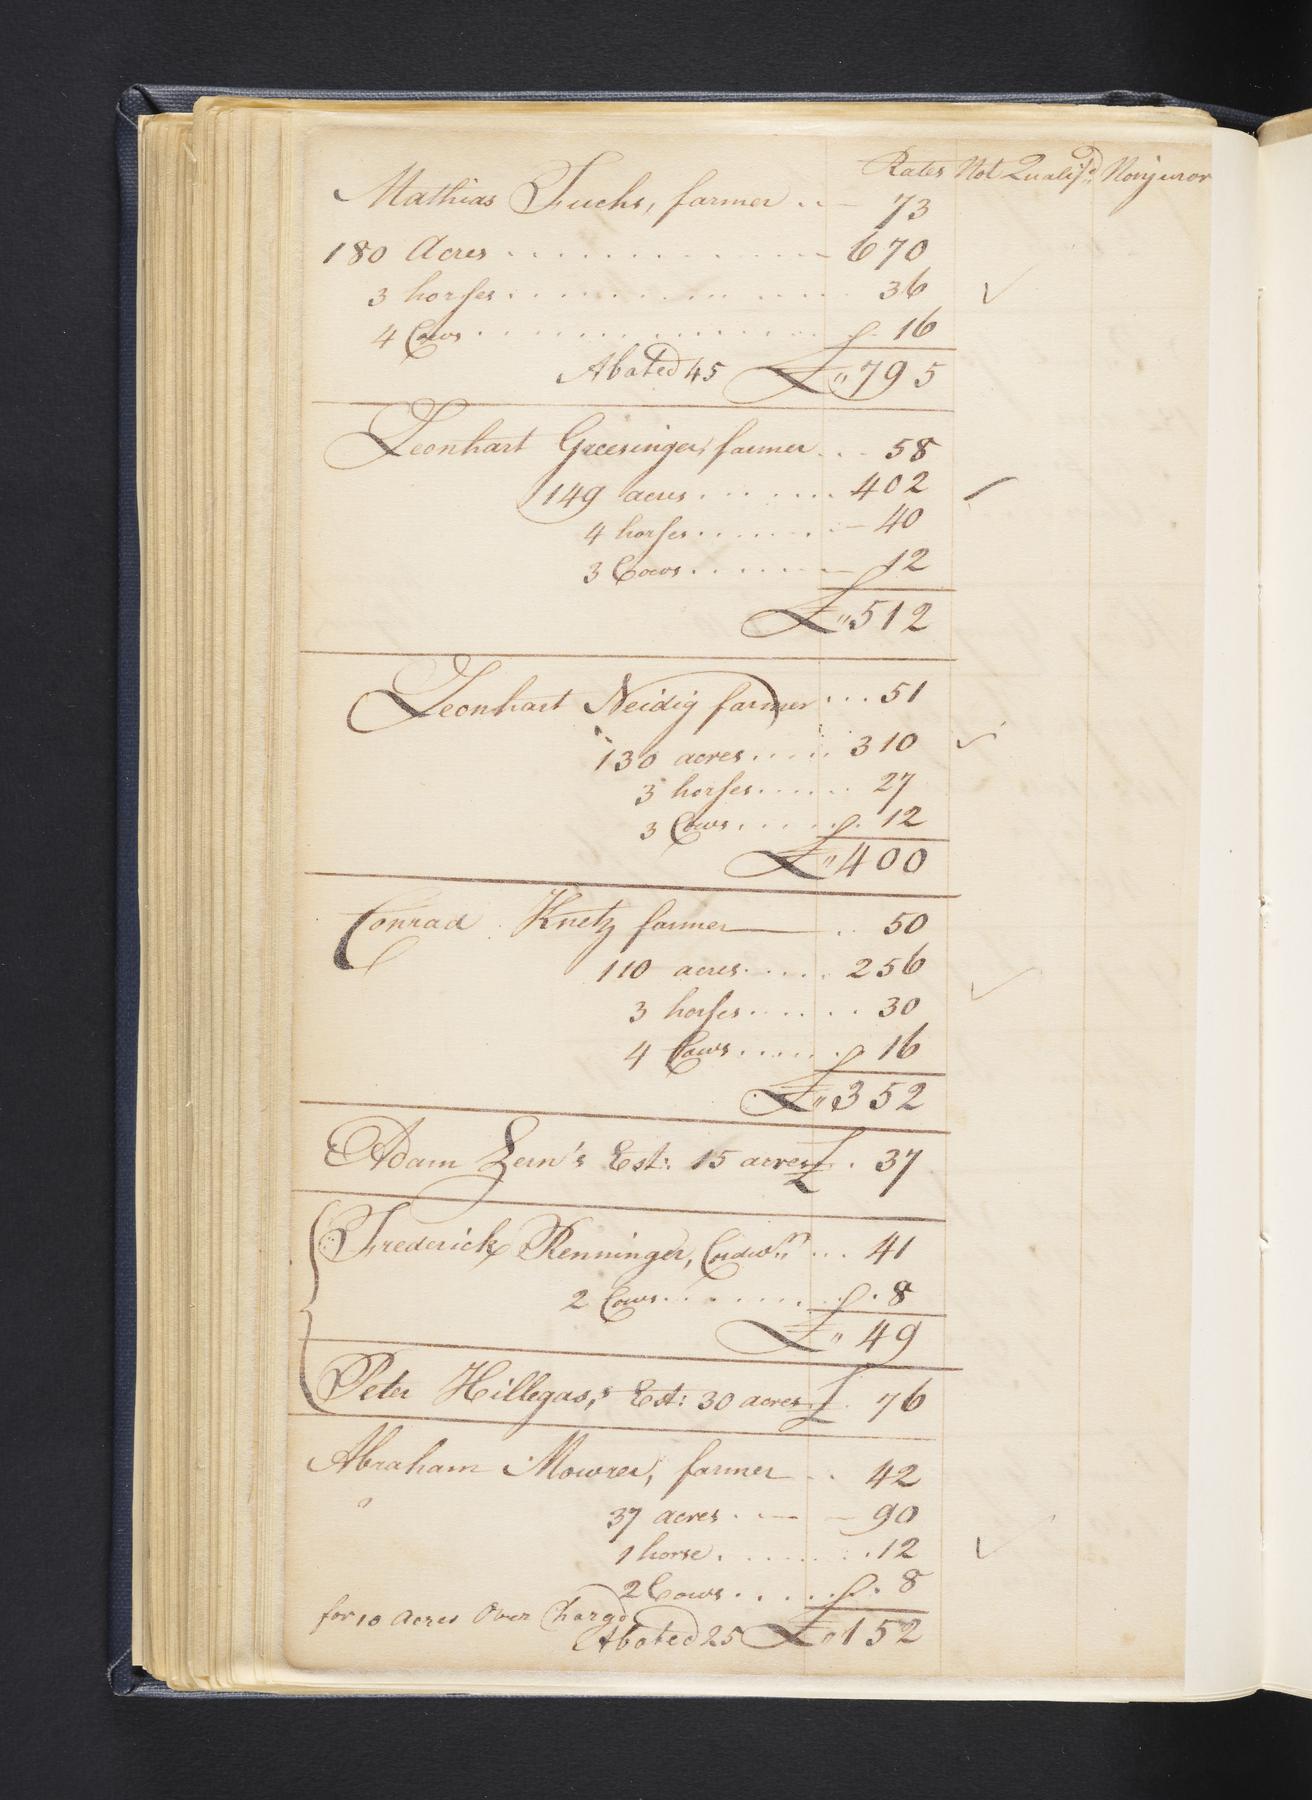 Rates Not Qualif'd Nonjuror
Mathias Fuchs, farmer .. — 73
180 Acres . . . . . . . . . . . . . 670
3 horses . . . . . . . . . . . . . 36
4 Cows . . . . . . . . . . . . . 16
Abated 45 £ " 795
Leonhart Greesinger, farmer . . . 58
149 acres . . . . . . . 402
4 horses . . . . . . . — 40
3 Cows . . . . . . — 12
£ " 512
Leonhart Neidig farmer . . . 51
130 acres . . . . . 310
3 horses . . . . . . 27
3 Cows . . . . . . 12
£ " 400
Conrad Knetz farmer — . . 50
110 acres . . . . . 256
3 horses . . . . . . . 30
4 Cows . . . . . . 16
£ " 352
Adam Zern's Est: 15 acres £ . 37
Frederick Renninger, Cordwr . . . 41
2 Cows . . . . . . . . . 8
£ " 49
Peter Hillegas,s Est: 30 acres £ . 76
Abraham Mowrer, farmer . . 42
37 acres . — — 90
1 horse . . . . . . . . 12
2 Cows . . . . . . 8
for 10 acres Over Charged
Abated 25 £ " 152